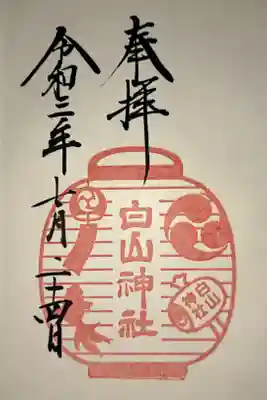 奉拝
白山神社
白山神社
令和二年七月二十四日